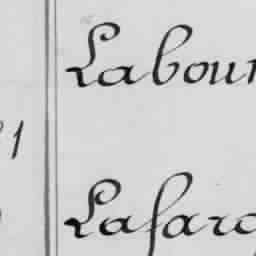 Labour
1
Lafarg